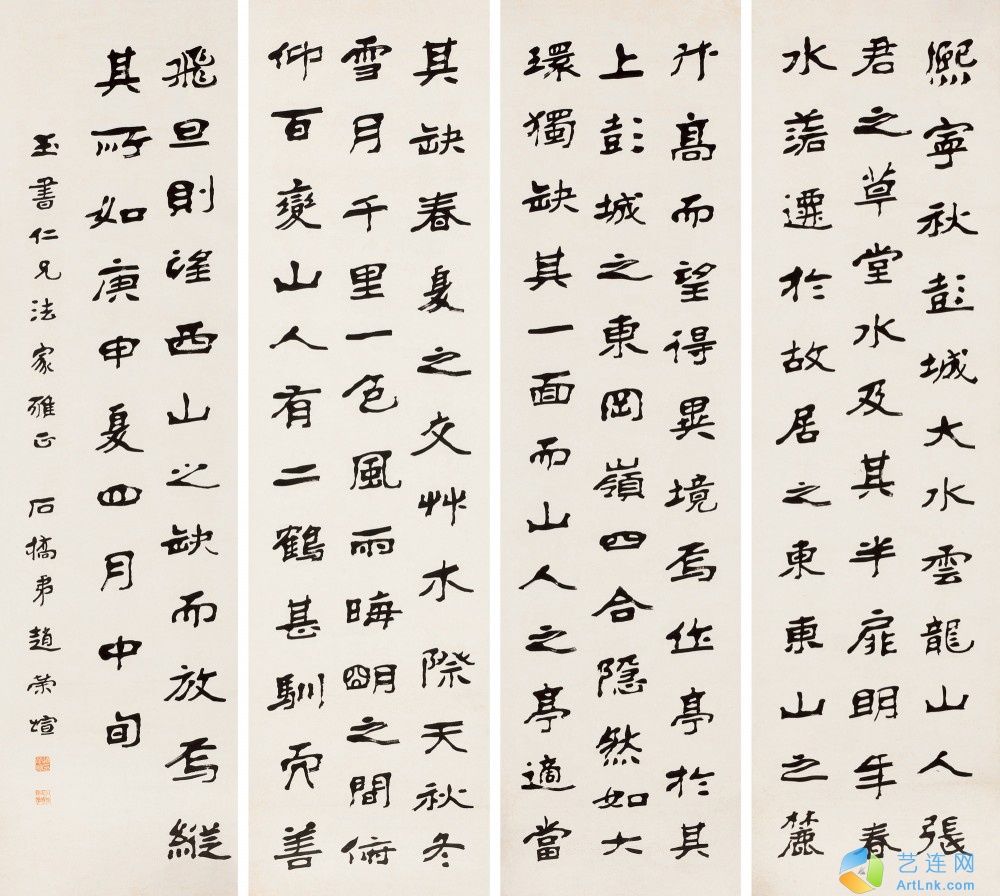 熙寧秋彭城大水雲龍山人張
君之草堂水及其半扉明年春
水落遷於故居之東東山之麓
升高而望得異境焉作亭於其
上彭城之東岡嶺四合隱然如大
環獨缺其一面而山人之亭適當
其缺春夏之交艸木際天秋冬
雪月千里一色風雨晦明之間俯
仰百變山人有二鶴甚馴而善
飛旦則望西山之缺而放焉縱
其所如庚申夏四月中旬
玉書仁兄法家雅正 石橋弟趙榮
艺连网
ArtLnk.com